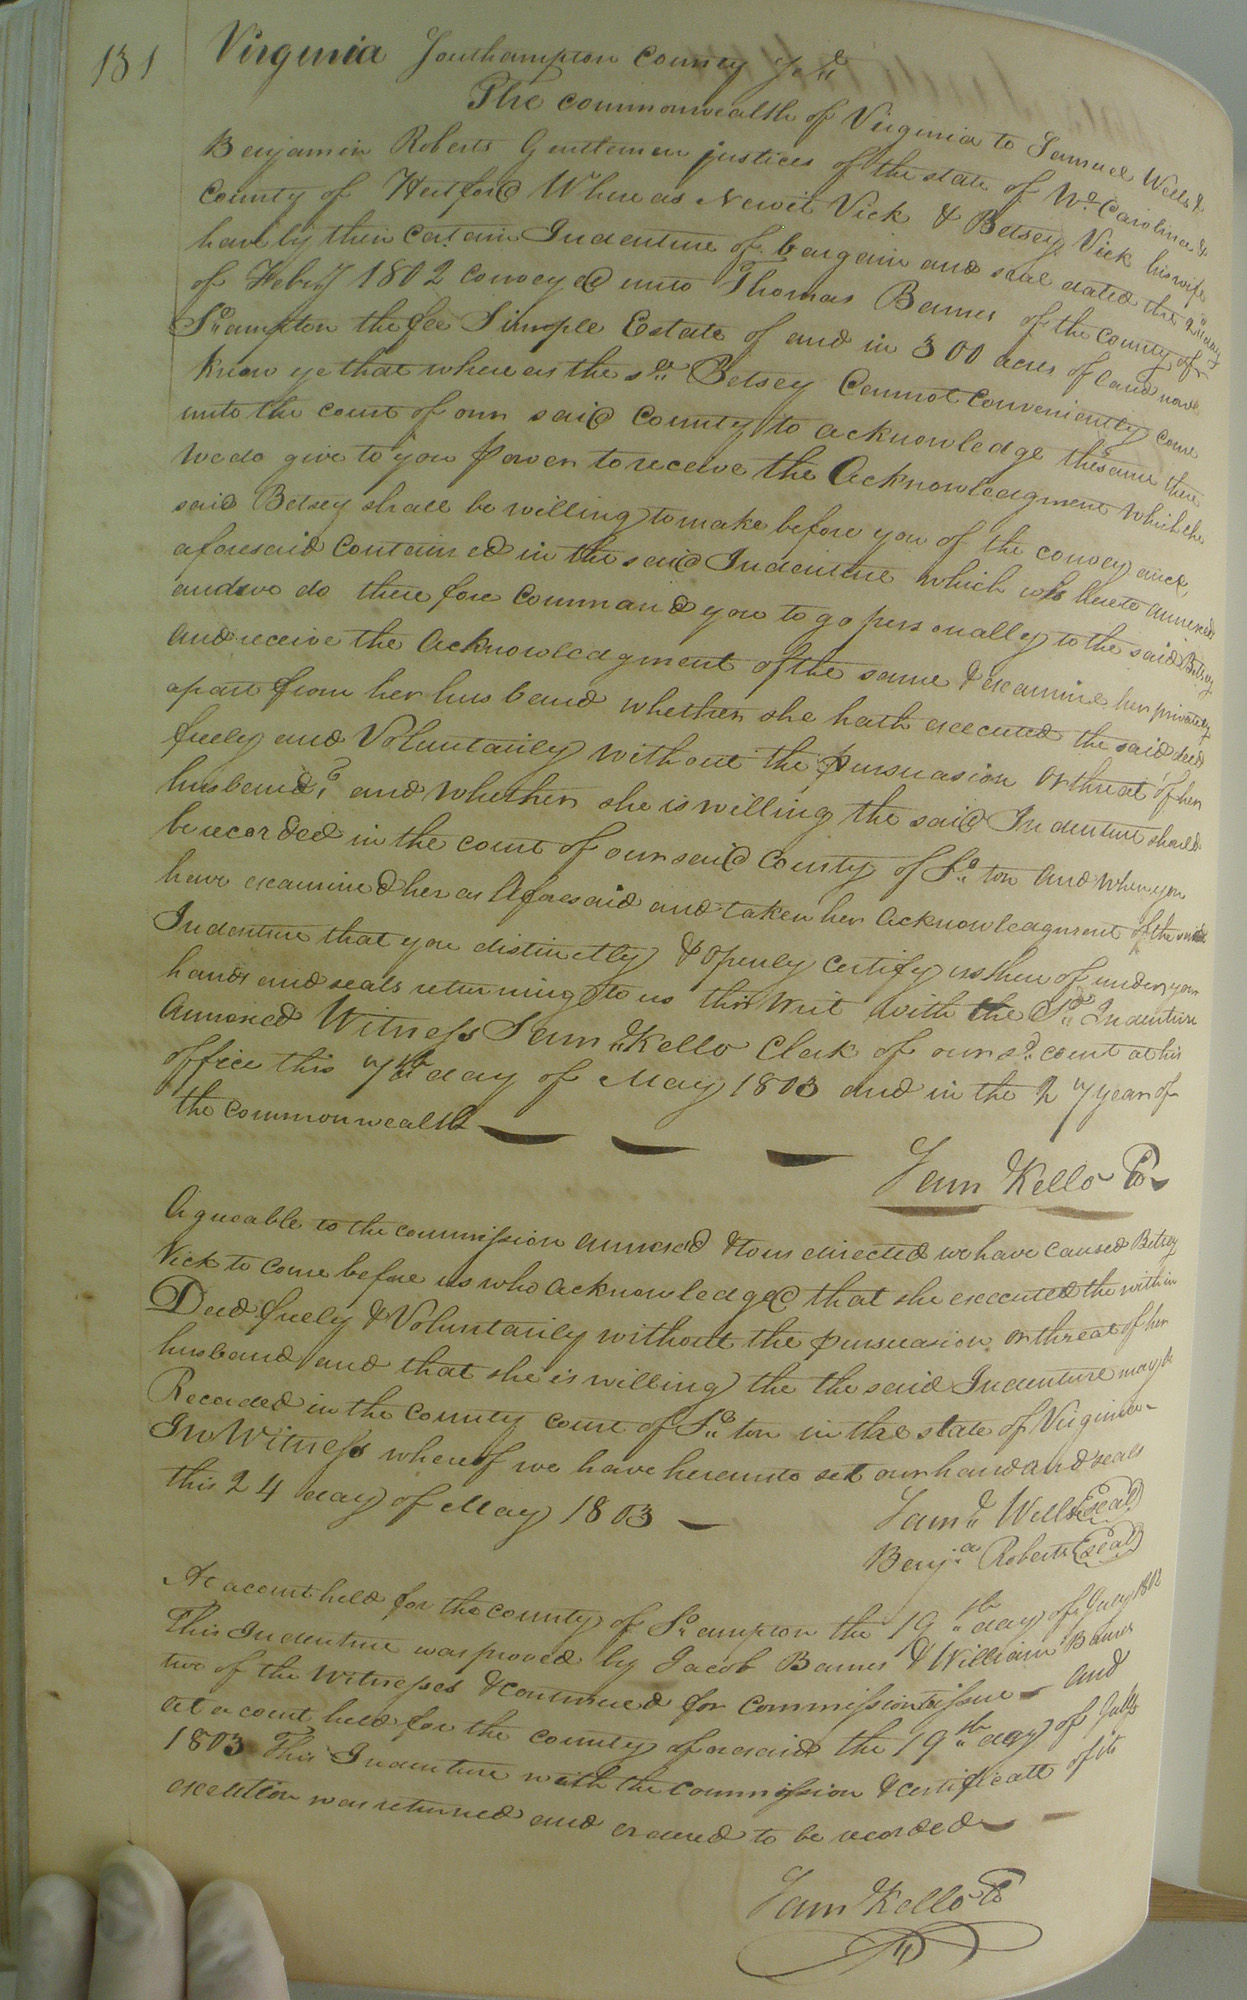 131
Virginia Southampton County To Wit
The commonwealth of Virginia to Samuel Wells &
Benjamin Roberts Gentlemen justices of the state of No. Carolina &
County of Hertford Whereas Newit Vick & Betsey Vick his wife
have by their certain Indenture of bargain and seal dated the day
of Feby 1802 conveyed unto Thomas Barnes of the county of
So.ampton the fee Simple Estate of and in 300 acres of land now
Know ye that where as the sd. Betsey Cannot conveniently come
unto the court of our said county to acknowledge the same there
We do give to you Power to receive the Acknowledgment which the
said Betsey shall be willing to make before you of the conveyance,
aforesaid contained in the said Indenture which is hereto annexed
and we do there fore command you to go personally to the said Betsey
And receive the Acknowledgment of the same & examine her privately
apart from her husband whether she hath executed the said deed
freely and Voluntarily without the persuasion or threat of her
husband, and whether she is willing the said Indenture should
be recorded in the court of our said county of So. ton and when you
have examined her as Aforesaid and taken her acknowledgment of the said
Indenture that you distinctly & openly certify us there of under your
hands and seals returning to us this writ with the Sd. Indenture
annexed Witness Sam Kello Clerk of our sd. court at his
office this 7th day of May 1803 and in the 27 year of
the commonwealth
Sam Kello Co
Agreable to the commission annexed & to us directed we have caused Betsey
Vick to come before us who acknowledged that she executed the within
Deed freely & Voluntarily without the persuasion or threat of her
husband and that she is willing the the said Indenture may be
Recorded in the county court of So. ton in the state of Virginia
In Witness whereof we have hereunto set our hand and seals
this 24 day of May 1803
Saml. Wells (seal)
Benja. Roberts (seal)
At a court held for the county of So.ampton the 19th day of July 1802
This Indenture was proved by Jacob Barnes & William Barnes
two of the Witnesses & continued for commission to issue and
at a court held for the county aforesaid the 19th day of July
1803 This Indenture with the commission & certificate of its
execution was returned and ordered to be recorded
Sam Kello Co